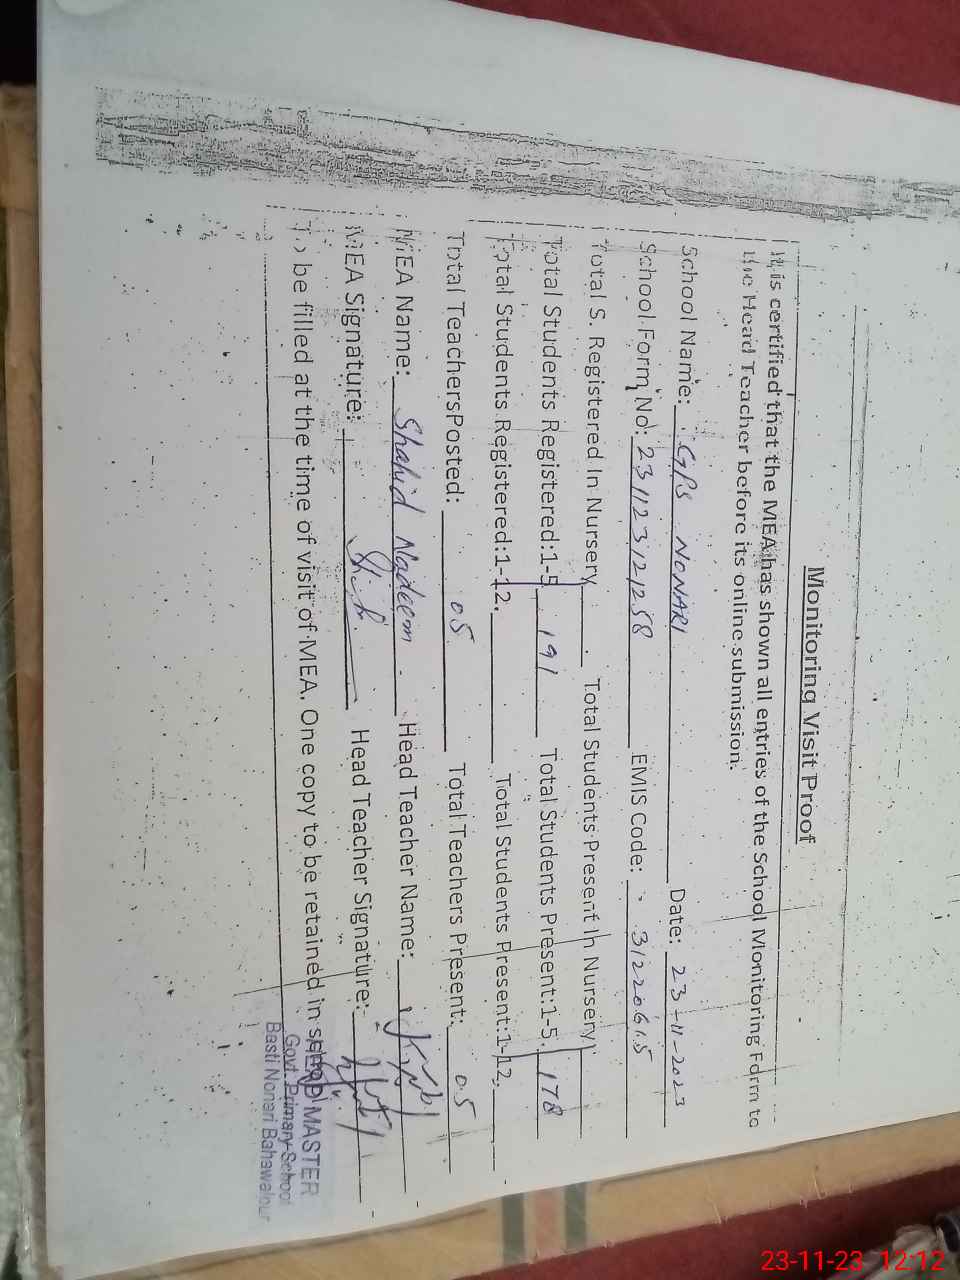 Monitoring Visit Proof
It is certified that the MEA has shown all entries of the School Monitoring Form to
the Head Teacher before its online submission.
School Name: GPS NONARI Date: 23-11-2023
School Form No: 231123121258 EMIS Code: 31220615
Total S. Registered In Nursery Total Students Present In Nursery
Total Students Registered:1-5 191 Total Students Present:1-5. 178
Total Students Registered:1-12. Total Students Present:1-12.
Total TeachersPosted: 05 Total Teachers Present: 05
MEA Name: Shahid Nadeem Head Teacher Name:
MEA Signature: Head Teacher Signature:
To be filled at the time of visit of MEA. One copy to be retained in school
HEAD MASTER
Govt. Primary School
Basti Nonari Bahawalpur
23-11-23 12:12